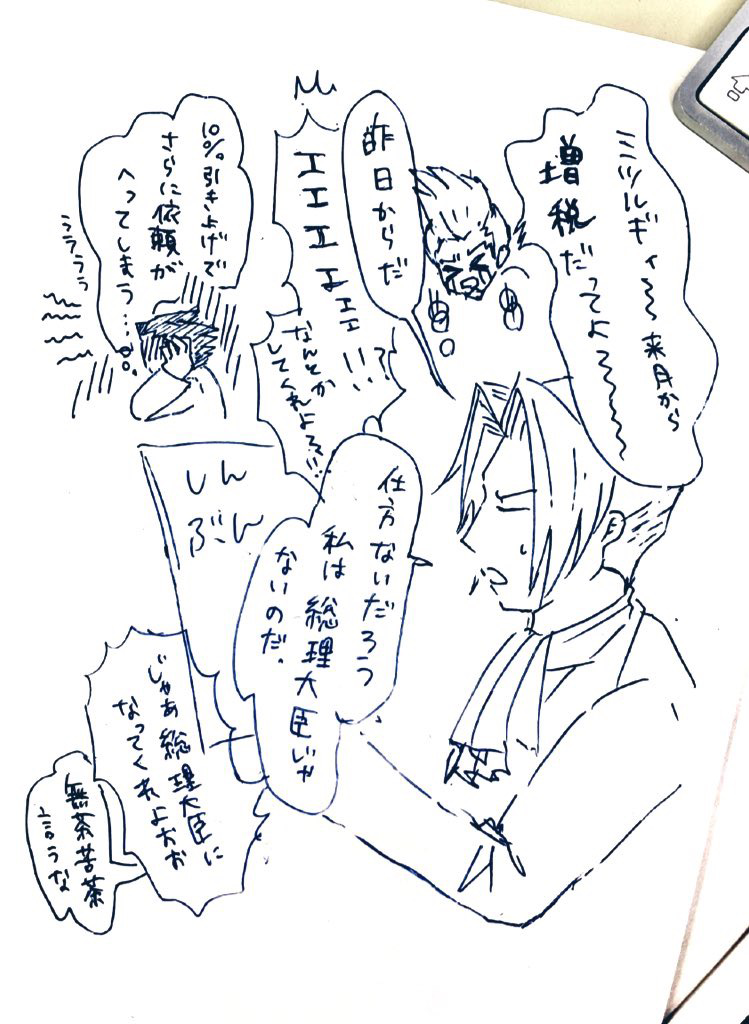 ミツルギィ〜〜来月から
増税だってよ〜〜〜
昨日からだ
エエエエェェ!!!
なんとか
してくれよろ!!
10%引き上げで
さらに依頼が
へってしまう…
うううう
しん
ぶん
仕方ないだろう
私は総理大臣じゃ
ないのだ.
じゃあ総理大臣に
なってくれよおお
無茶苦茶
言うな